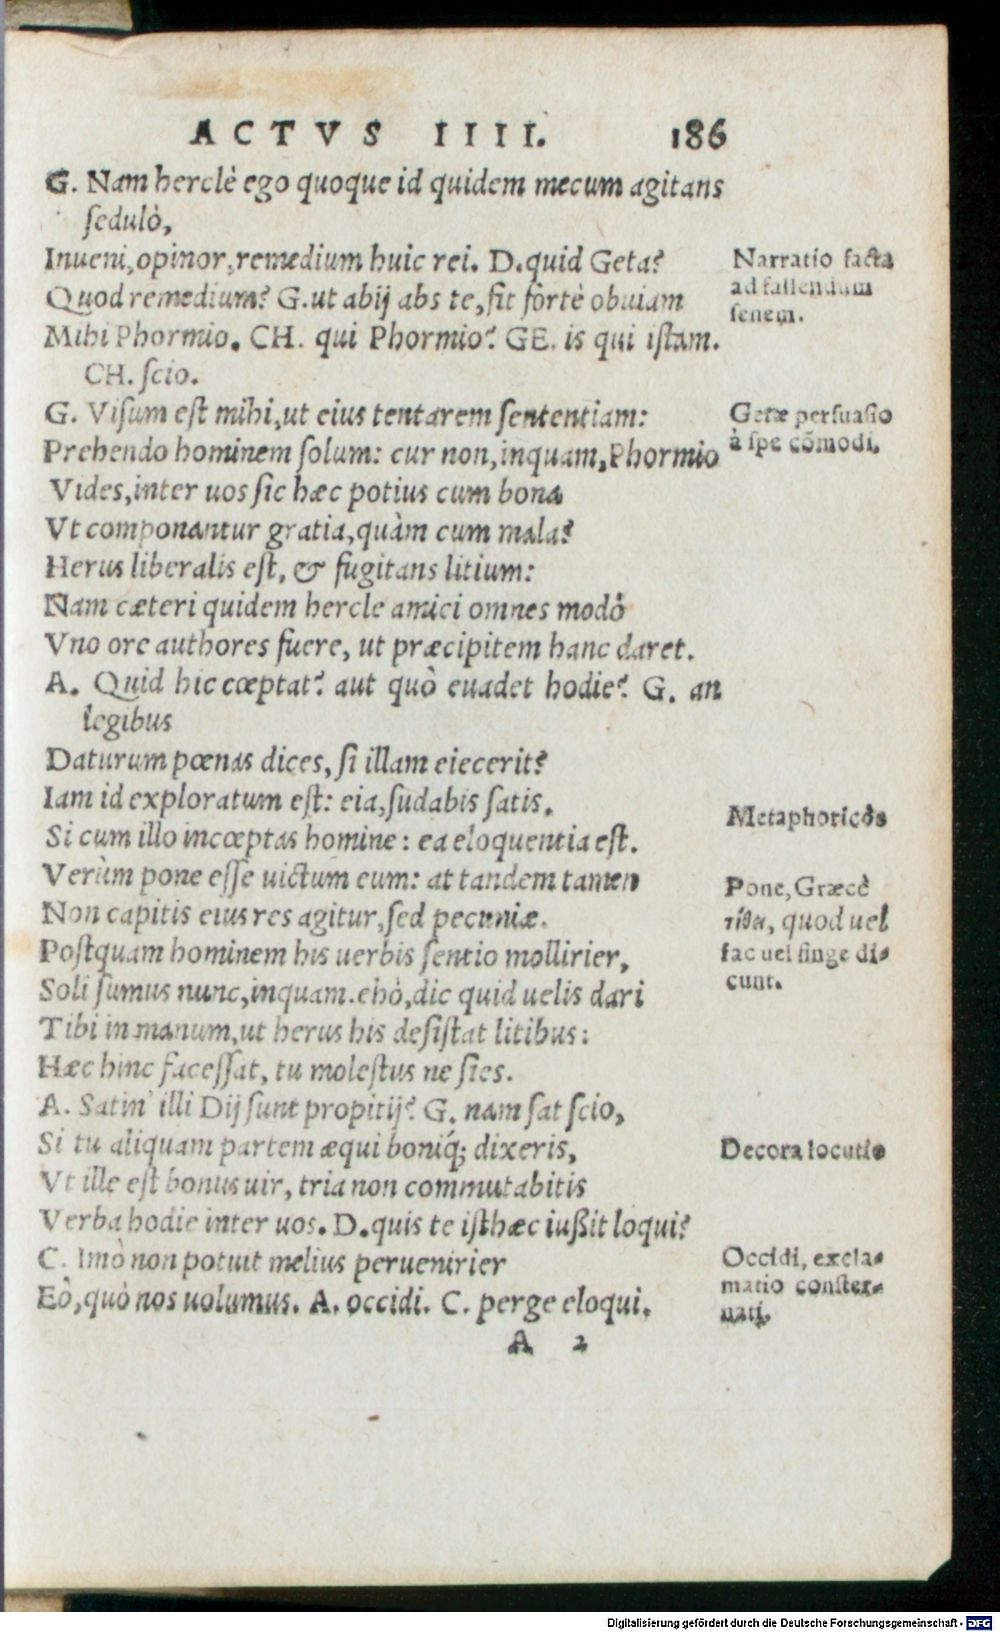 ACTVS IIII. 186
G. Nam herclè ego quoque id quidem mecum agitans
sedulò,
Inueni, opinor, remedium huic rei. D. quid Geta?
Quod remedium? G. ut abij abs te, fit fortè obuiam
Mihi Phormio. CH. qui Phormio? GE. is qui istam.
CH. scio.
G. Visum est mihi, ut eius tentarem sententiam:
Prehendo hominem solum: cur non, inquam, Phormio
Vides, inter uos sic hæc potius cum bona
Vt componantur gratia, quàm cum mala?
Herus liberalis est, & fugitans litium:
Nam cæteri quidem hercle amici omnes modò
Vno ore authores fuere, ut præcipitem hanc daret.
A. Quid hic cœptat? aut quò euadet hodie? G. an
legibus
Daturum pœnas dices, si illam eiecerit?
Iam id exploratum est: eia, sudabis satis,
Si cum illo incœptas homine: ea eloquentia est.
Verùm pone esse uictum eum: at tandem tamen
Non capitis eius res agitur, sed pecuniæ.
Postquam hominem his uerbis sentio mollirier,
Soli sumus nunc, inquam. ehò, dic quid uelis dari
Tibi in manum, ut herus his desistat litibus:
Hæc hinc facessat, tu molestus ne sies.
A. Satin' illi Dij sunt propitij? G. nam sat scio,
Si tu aliquam partem æqui boniq́; dixeris,
Vt ille est bonus uir, tria non commutabitis
Verba hodie inter uos. D. quis te isthæc iußit loqui?
C. Imò non potuit melius peruenirier
Eò, quò nos uolumus. A. occidi. C. perge eloqui.
A 2
Narratio facta
ad fallendum
senem.
Getæ persuasio
à spe cõmodi.
Metaphoricōs
Pone, Græcè
τίθει, quod uel
fac uel finge di-
cunt.
Decora locutio
Occidi, excla-
matio conster-
nati.
Digitalisierung gefördert durch die Deutsche Forschungsgemeinschaft - DFG